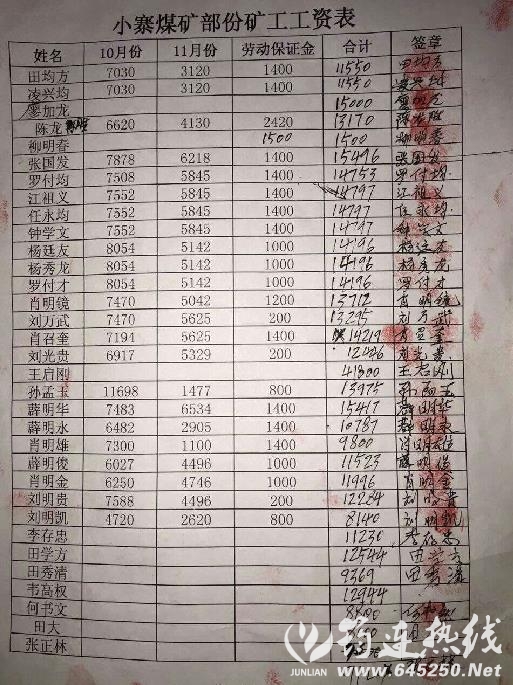 小寨煤矿部份矿工工资表
姓名 10月份 11月份 劳动保证金 合计 签章
田均方 7030 3120 1400 11550 田均方
凌兴均 7030 3120 1400 11550 凌兴均
廖加龙 15000 廖加龙
陈龙 6620 4130 2420 13170
柳明春 1500 1500 柳明春
张国发 7878 6218 1400 15496 张国发
罗付均 7508 5845 1400 14753 罗付均
江祖义 7552 5845 1400 14797 江祖义
任永均 7552 5845 1400 14797 任永均
钟学文 7552 5845 1400 14797 钟学文
杨廷友 8054 5142 1000 14196 杨廷友
杨秀龙 8054 5142 1000 14196 杨秀龙
罗付才 8054 5142 1000 14196 罗付才
肖明镜 7470 5042 1200 13712 肖明镜
刘万武 7470 5625 200 13295 刘万武
肖召奎 7194 5625 1400 14219 肖召奎
刘光贵 6917 5329 200 12446 刘光贵
王启刚 41800 王启刚
孙孟玉 11698 1477 800 13975 孙孟玉
薜明华 7483 6534 1400 15417 薜明华
薜明永 6482 2905 1400 10787 薜明永
肖明雄 7300 1100 1400 9800 肖明雄
薜明俊 6027 4496 1000 11523 薜明俊
肖明金 6250 4746 1000 11996 肖明金
刘明贵 7588 4496 200 12284 刘明贵
刘明凯 4720 2620 800 8140 刘明凯
李存忠 11230 李存忠
田学方 12544 田学方
田秀清 9369 田秀清
韦高权 12944
何书文
田大
张正林
筠连热线
JUNLIAN www.645250.net